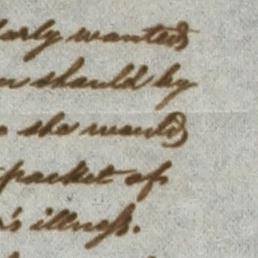 larly wanted
should by
she would
packet of
's illness.